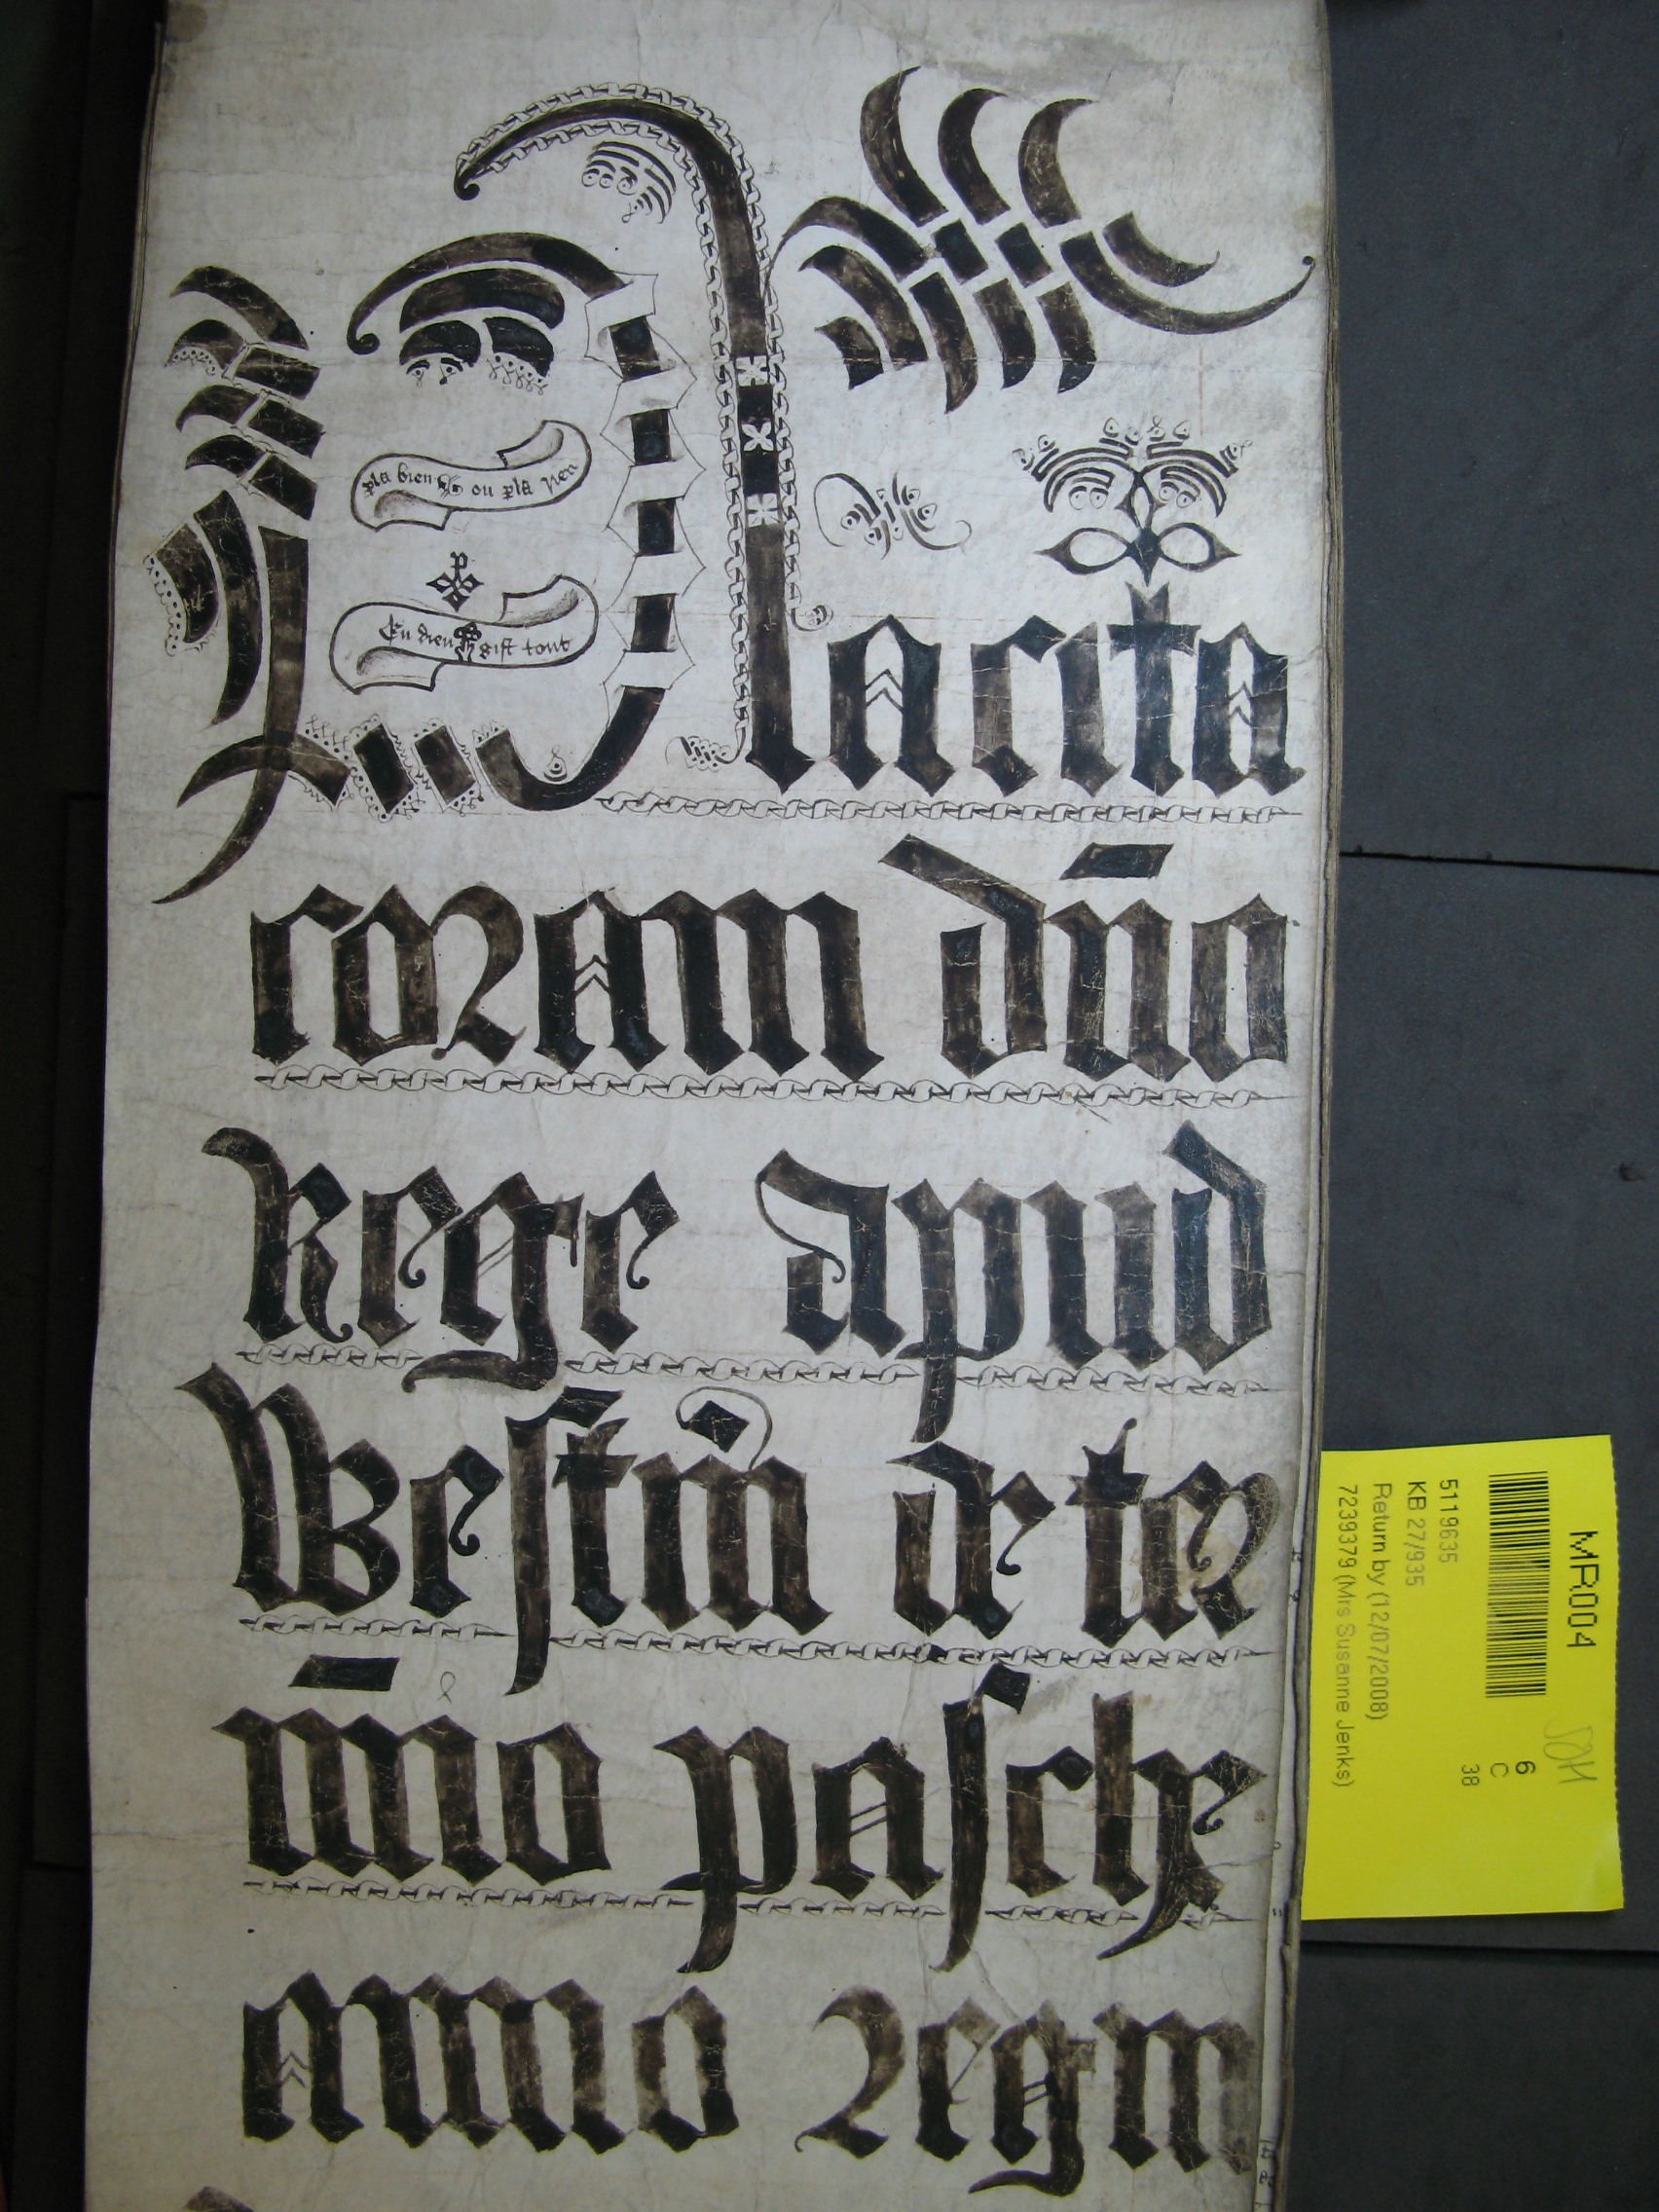 pla bien ou pla rien
En dieu gist tout
Placita
coram dño
Rege apud
Westm̄ de ter
mīo pasche
anno regni
MR004
5119635
KB 27/935
Return by (12/07/2008)
7239379 (Mrs Susanne Jenks)
6
C
38